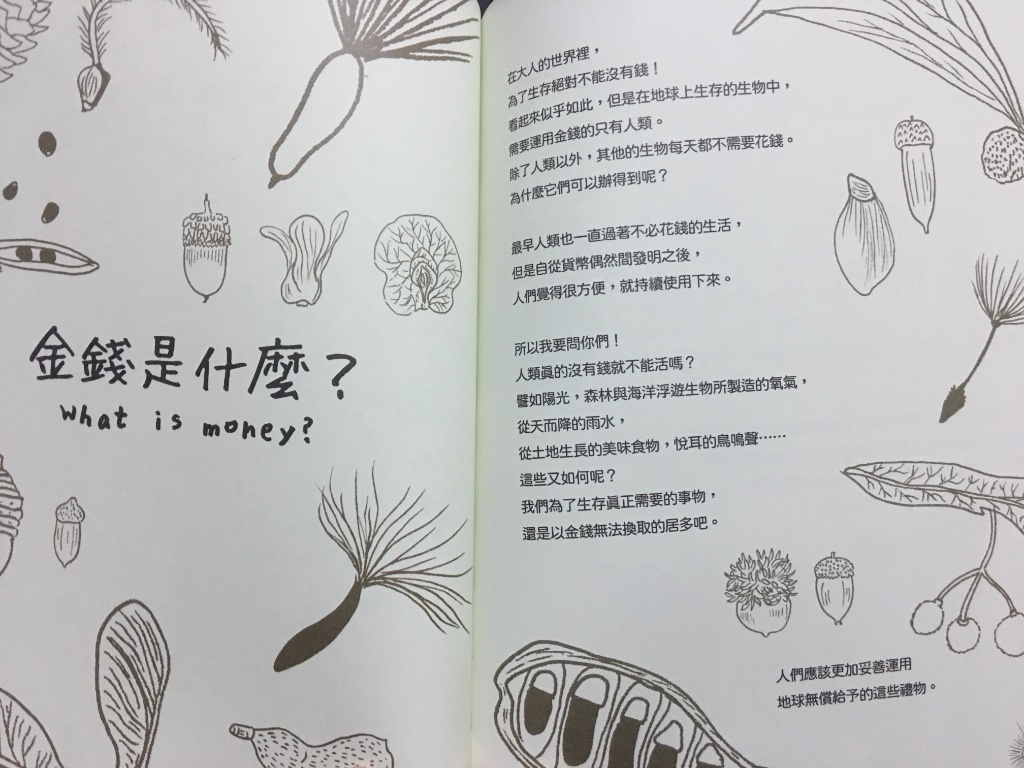 金錢是什麼？
What is money?
在大人的世界裡，
為了生存絕對不能沒有錢！
看起來似乎如此，但是在地球上生存的生物中，
需要運用金錢的只有人類。
除了人類以外，其他的生物每天都不需要花錢。
為什麼它們可以辦得到呢？
最早人類也一直過著不必花錢的生活，
但是自從貨幣偶然間發明之後，
人們覺得很方便，就持續使用下來。
所以我要問你們！
人類真的沒有錢就不能活嗎？
譬如陽光，森林與海洋浮遊生物所製造的氧氣，
從天而降的雨水，
從土地生長的美味食物，悅耳的鳥鳴聲……
這些又如何呢？
我們為了生存真正需要的事物，
還是以金錢無法換取的居多吧。
人們應該更加妥善運用
地球無償給予的這些禮物。